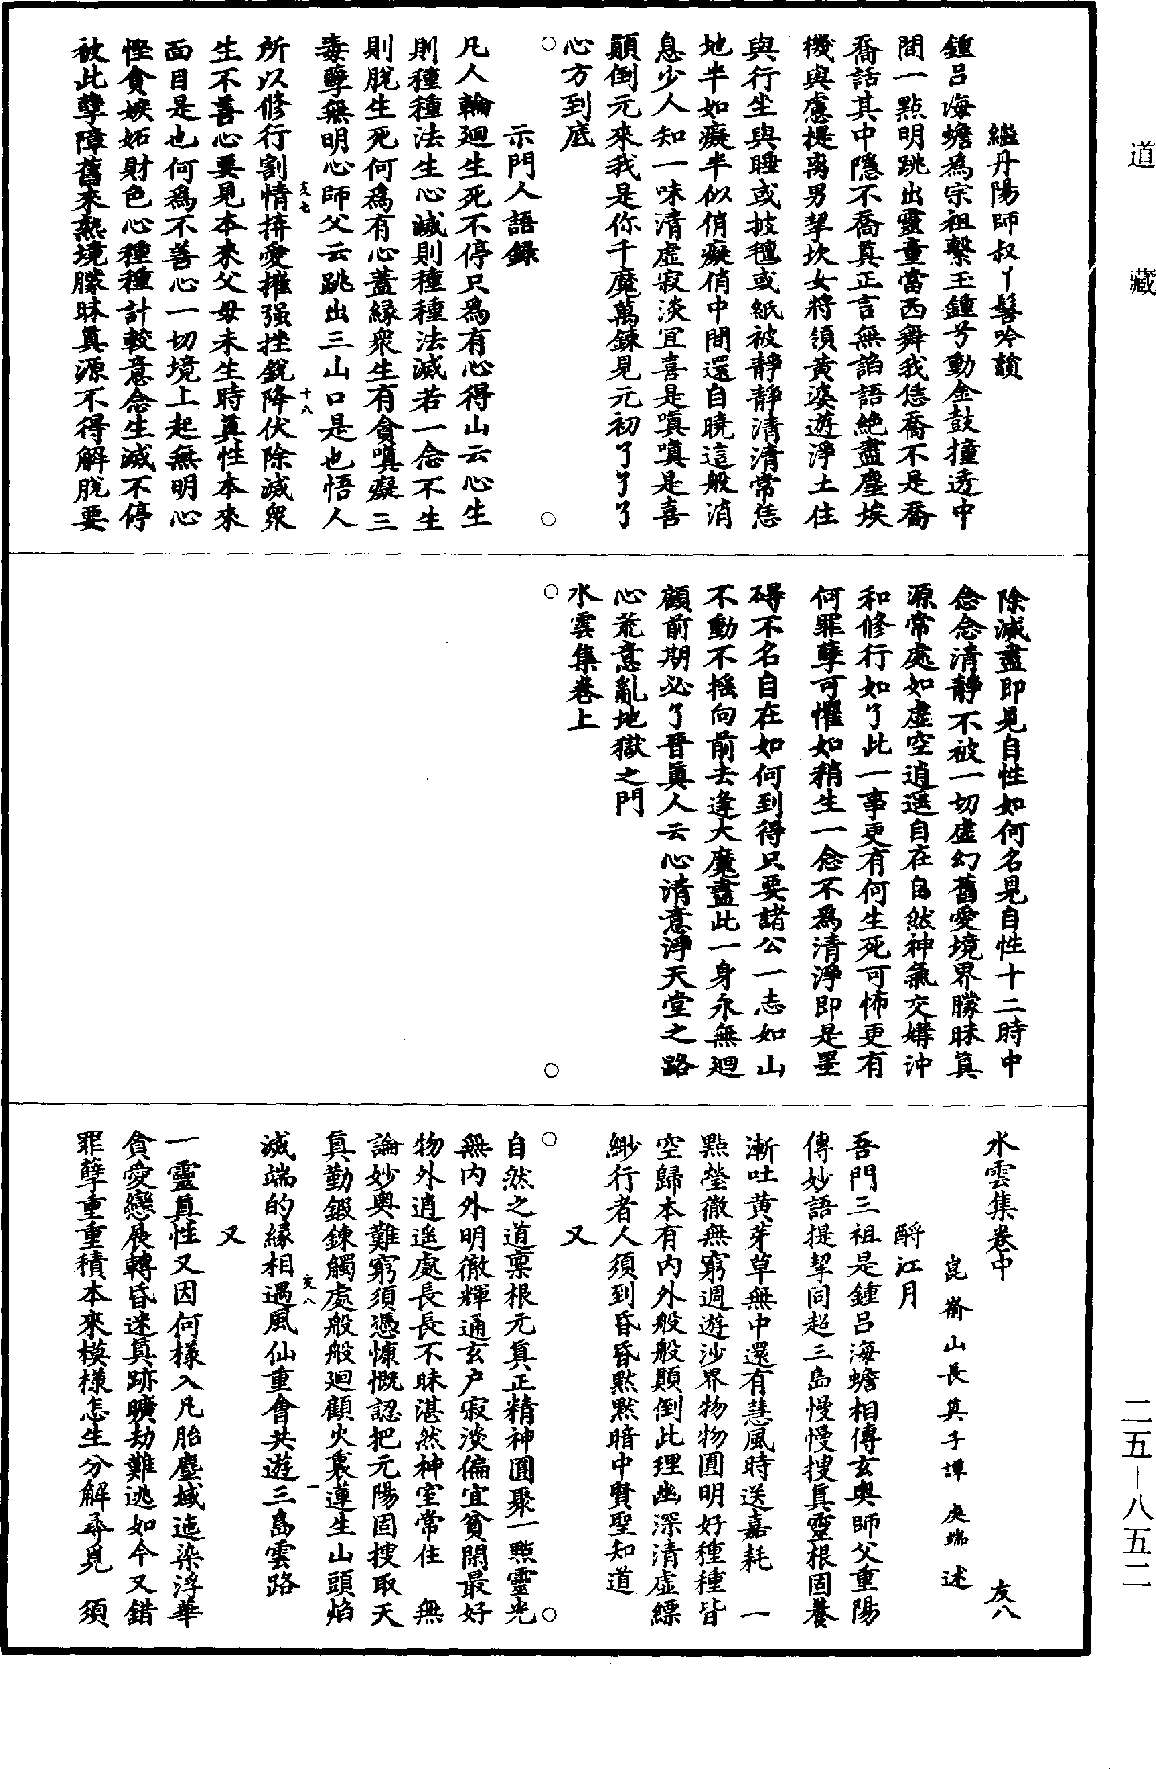 道藏
繼丹陽師叔丫髻吟韻
鍾呂海蟾為宗祖繫玉鍾兮動金鼓撞透中
間一點明跳出靈童當西舞我恁喬不是喬
喬話其中隱不喬真正言無諂語絶盡塵埃
機與慮提离男挈坎女將領黃婆遊淨土住
與行坐與睡或披氊或紙被靜靜清清常恁
地半如癡半似俏癡俏中間還自曉這般消
息少人知一味清虛寂淡宜喜是嗔嗔是喜
顛倒元來我是你千魔萬鍊見元初了了了
心方到底
示門人語録
凡人輪廻生死不停只為有心得山云心生
則種種法生心滅則種種法滅若一念不生
則脫生死何為有心蓋緣衆生有貪嗔癡三
毒孽無明心師父云跳出三山口是也悟人
所以修行割情捹愛摧强挫銳降伏除滅衆
生不善心要見本來父母未生時真性本來
面目是也何為不善心一切境上起無明心
慳貪嫉妬財色心種種計較意念生滅不停
被此孽障舊來熟境朦昧真源不得解脫要
除滅盡即見自性如何名見自性十二時中
念念清靜不被一切虛幻舊愛境界朦昧真
源常處如虛空逍遥自在自然神氣交媾沖
和修行如了此一事更有何生死可怖更有
何罪孽可懼如稍生一念不為清淨即是罣
碍不名自在如何到得只要諸公一志如山
不動不搖向前去逢大魔盡此一身永無廻
顧前期必了晉真人云心清意淨天堂之路
心荒意亂地獄之門
水雲集卷上
水雲集卷中
友八
崑崙山長真子譚處端述
酹江月
吾門三祖是鍾呂海蟾相傳玄奥師父重陽
傳妙語提挈同超三島慢慢搜真靈根固養
漸吐黄芽草無中還有慧風時送嘉耗 一
點瑩徹無窮週遊沙界物物圓明好種種皆
空歸本有内外般般顛倒此理幽深清虛縹
緲行者人須到昏昏默默暗中賢聖知道
又
自然之道稟根元真正精神圓聚一點靈光
無内外明徹輝通玄户寂淡偏宜貧閑最好
物外逍遥處長長不昧湛然神室常住 無
論妙奥難窮須憑慷慨認把元陽固搜取天
真勤鍛鍊觸處般般廻顧火裏蓮生山頭焰
滅端的緣相遇風仙重會共遊三島雲路
又
一靈真性又因何樣入凡胎塵域迤染浮華
貪愛戀展轉昏迷真跡曠劫難逃如今又錯
罪孽重重積本來模樣怎生分解尋覓 須
二五—八五二